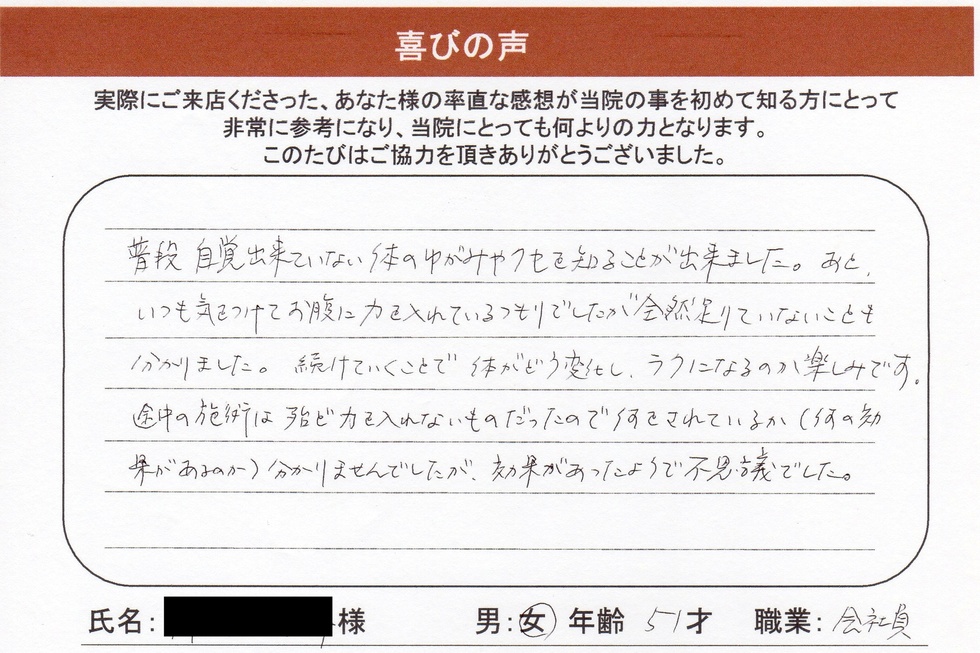 喜びの声
実際にご来店くださった、あなた様の率直な感想が当院の事を初めて知る方にとって
非常に参考になり、当院にとっても何よりの力となります。
このたびはご協力を頂きありがとうございました。
普段 自覚出来ていない体のゆがみやクセを知ることが出来ました。あと、
いつも気をつけてお腹に力を入れているつもりでしたが全然足りていないことも
分かりました。続けていくことで体がどう変化し、ラクになるのか楽しみです。
途中の施術は殆ど力を入れないものだったので何をされているか(何の効
果があるのか)分かりませんでしたが、効果があったようで不思議でした。
氏名: 様 男:女 年齢 51才 職業:会社員